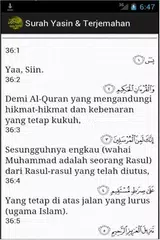 6:47
Surah Yasin & Terjemahan
36:1
Yaa, Siin.
36:2
وَالْقُرْآنِ الْحَكِيمِ
Demi Al-Quran yang mengandungi
hikmat-hikmat dan kebenaran
yang tetap kukuh,
36:3
إِنَّكَ لَمِنَ الْمُرْسَلِينَ
Sesungguhnya engkau (wahai
Muhammad adalah seorang Rasul)
dari Rasul-rasul yang telah diutus,
36:4
عَلَىٰ صِرَاطٍ مُّسْتَقِيمٍ
Yang tetap di atas jalan yang lurus
(ugama Islam).
36:5
تَنزِيلَ الْعَزِيزِ الرَّحِيمِ